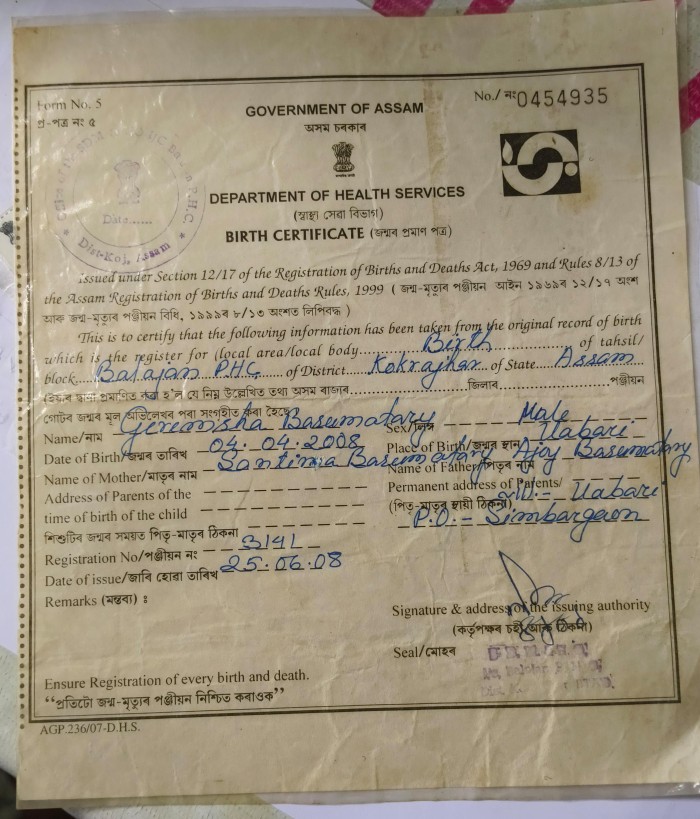 Form No. 5
প্ৰ-পত্ৰ নং ৫
No./ নং 0454935
GOVERNMENT OF ASSAM
অসম চৰকাৰ
DEPARTMENT OF HEALTH SERVICES
(স্বাস্থ্য সেৱা বিভাগ)
BIRTH CERTIFICATE (জন্মৰ প্ৰমাণ পত্ৰ)
Date......
Dist-Koj, Assam
Issued under Section 12/17 of the Registration of Births and Deaths Act, 1969 and Rules 8/13 of
the Assam Registration of Births and Deaths Rules, 1999 ( জন্ম-মৃত্যুৰ পঞ্জীয়ন আইন ১৯৬৯ৰ ১২/১৭ অংশ
আৰু জন্ম-মৃত্যুৰ পঞ্জীয়ন বিধি, ১৯৯৯ৰ ৮/১৩ অংশত লিপিবদ্ধ )
This is to certify that the following information has been taken from the original record of birth
which is the register for (local area/local body Birth of tahsil/
block Balajan PHC of District Kokrajhar of State Assam
(ইয়াৰ দ্বাৰা প্ৰমাণিত কৰা হ'ল যে নিম্ন উল্লেখিত তথ্য অসম ৰাজ্যৰ জিলাৰ পঞ্জীয়ন
গোটৰ জন্মৰ মূল অভিলেখৰ পৰা সংগৃহীত কৰা হৈছে
Name/নাম Geremsha Basumatary Sex/লিঙ্গ Male
Date of Birth/জন্মৰ তাৰিখ 04.04.2008 Place of Birth/জন্মৰ স্থান Uabari
Name of Mother/মাতৃৰ নাম Santimia Basumatary Name of Father/পিতৃৰ নাম Ajoy Basumatary
Address of Parents of the Permanent address of Parents/
time of birth of the child (পিতৃ-মাতৃৰ স্থায়ী ঠিকনা) Uabari
শিশুটিৰ জন্মৰ সময়ত পিতৃ-মাতৃৰ ঠিকনা P.O.- Simbargaon
Registration No/পঞ্জীয়ন নং 3141
Date of issue/জাৰি হোৱা তাৰিখ 25.06.08
Remarks (মন্তব্য) :
Signature & address of the issuing authority
(কৰ্তৃপক্ষৰ চহী আৰু ঠিকনা)
Seal/মোহৰ
Ensure Registration of every birth and death.
“প্ৰতিটো জন্ম-মৃত্যুৰ পঞ্জীয়ন নিশ্চিত কৰাওক”
AGP.236/07-D.H.S.